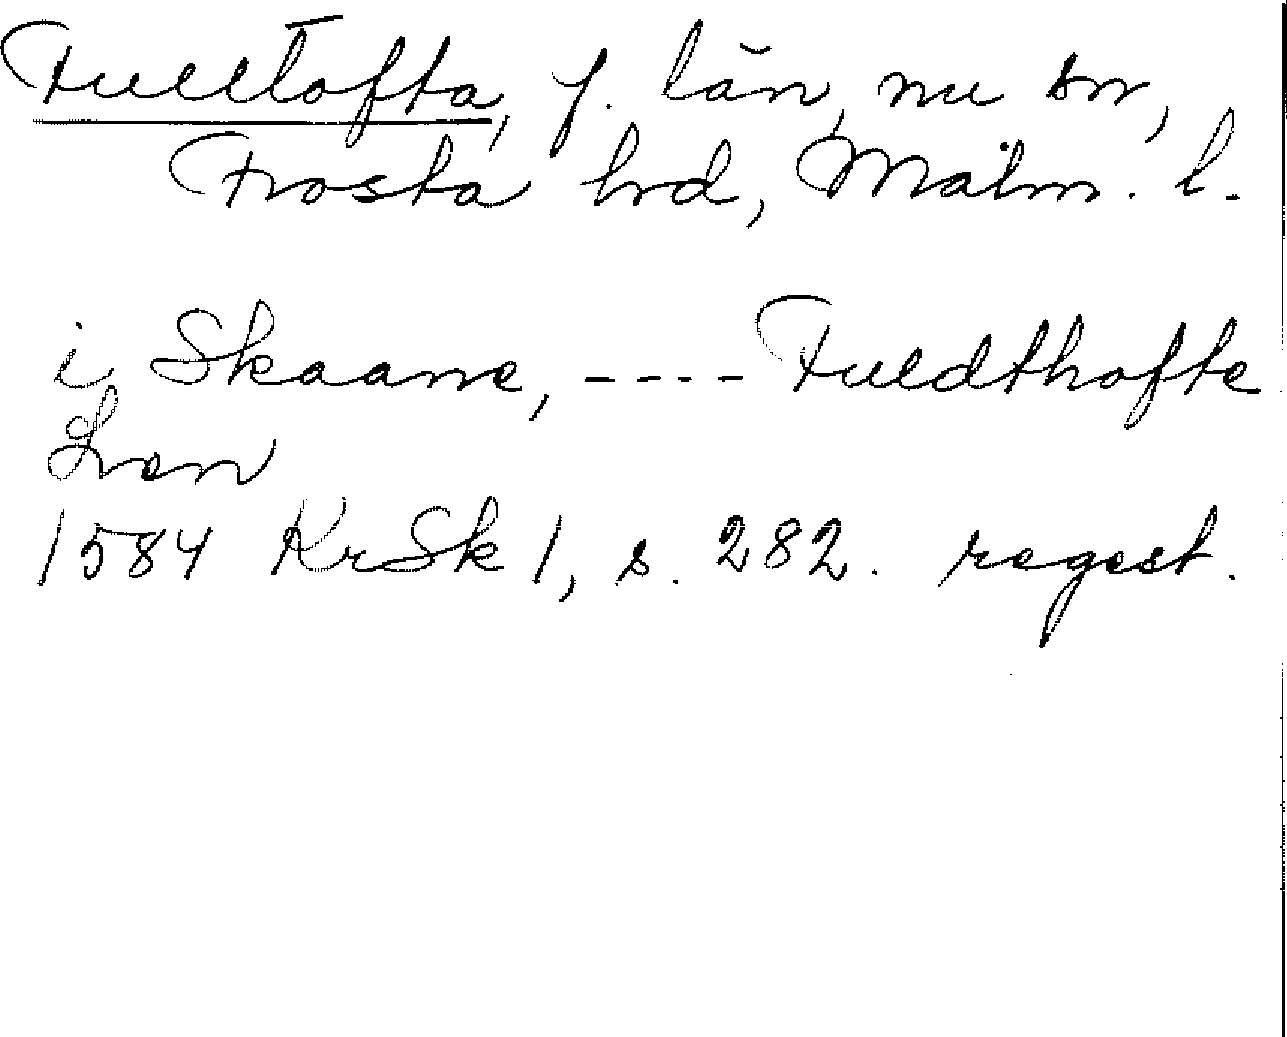 Fulltofta, f. län, nu sn,
Frosta hrd, Malm. l.
i Skaane, ---- Fuldthofte
Len
1584 KrSk 1, s. 282. regest.